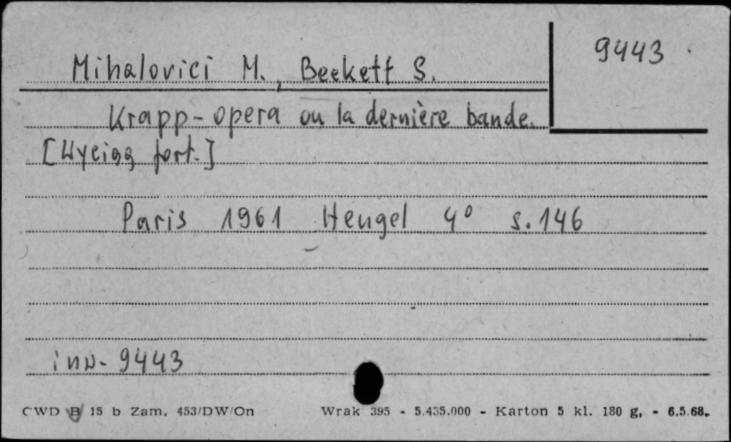 9443
Mihalovici M., Beckett S.
Krapp-opera ou la dernière bande.
[Wyciąg fort.]
Paris 1961 Heugel 4° s. 146
inw. 9443
CWD B 15 b Zam. 453/DW/On Wrak 395 - 5.435.000 - Karton 5 kl. 180 g, - 6.5.68.